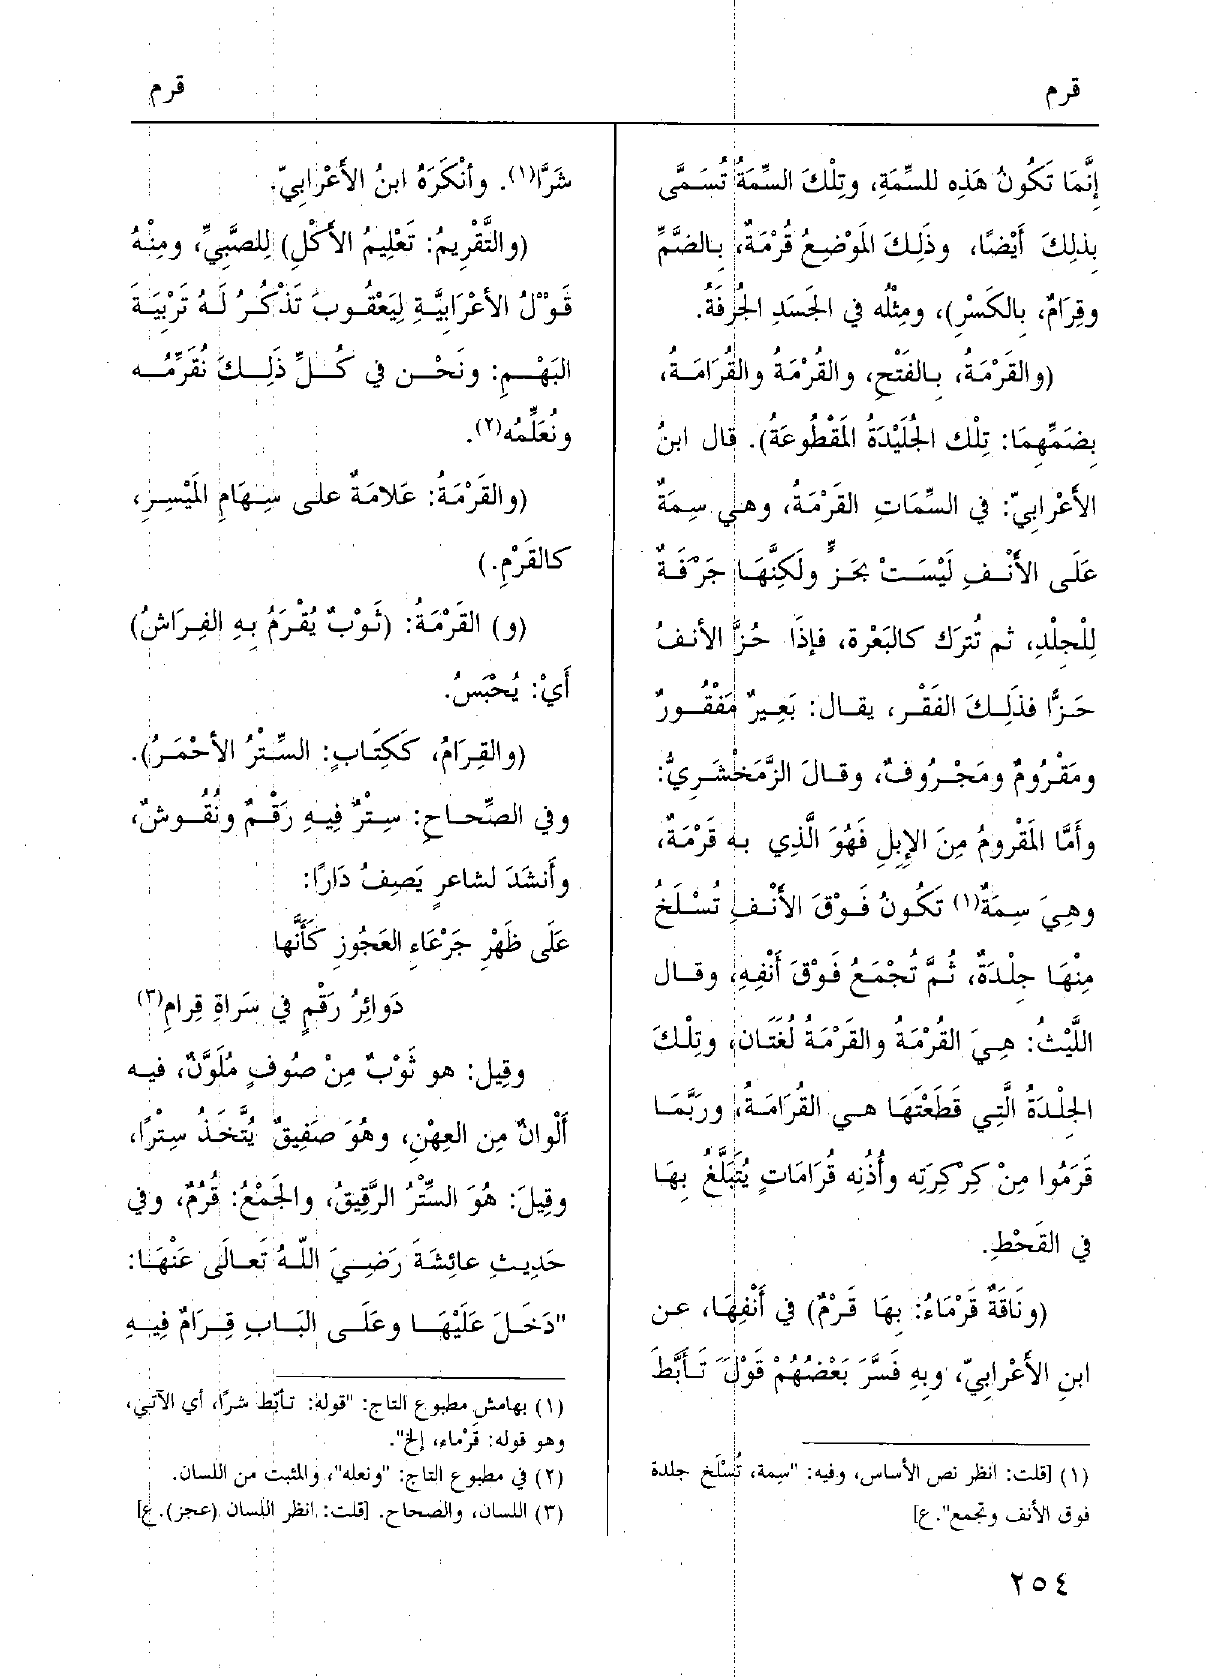 قرم
قرم
إنَّمَا تَكُونُ هَذِه للسِّمَةِ، وتِلْكَ السِّمَةُ تُسَمَّى
بِذلِكَ أَيْضًا، وَذَلِكَ المَوْضِعُ قُرْمَةٌ، بِالضَّمِّ
وقِرَامٌ، بِالكَسْرِ)، ومِثْلُه في الجَسَدِ الجُرْفَةُ.
(والقَرْمَةُ، بِالفَتْحِ، والقُرْمَةُ والقُرَامَةُ،
بِضَمِّهِمَا: تِلْك الجُلَيْدَةُ المَقْطُوعَةُ). قال ابنُ
الأَعْرابِيّ: في السِّمَاتِ القَرْمَةُ، وهي سِمَةٌ
عَلَى الأَنْفِ لَيْسَتْ بحَزٍّ ولَكِنَّهَا جَرْفَةٌ
لِلْجِلْدِ، ثم تُترَك كالبَعْرة، فإذَا حُزَّ الأنفُ
حَزًّا فذَلِكَ الفَقْر، يقال: بَعِيرٌ مَفْقُورٌ
ومَقْرُومٌ ومَجْرُوفٌ، وقالَ الزَّمَخْشَرِيُّ:
وأَمَّا المَقْرومُ مِنَ الإِبِلِ فَهُوَ الَّذِي به قَرْمَةٌ،
وهِيَ سِمَةٌ(١) تَكُونُ فَوْقَ الأَنْفِ تُسْلَخُ
مِنْهَا جِلْدَةٌ، ثُمَّ تُجْمَعُ فَوْقَ أَنْفِهِ، وقال
اللَّيْثُ: هِيَ القُرْمَةُ والقَرْمَةُ لُغَتَان، وتِلْكَ
الجِلْدَةُ الَّتِي قَطَعْتَهَا هي القُرَامَةُ، ورَبَّمَا
قَرَمُوا مِنْ كِرْكِرَتِه وأُذُنِه قُرَامَاتٍ يُتَبَلَّغُ بِهَا
في القَحْطِ.
(ونَاقَةٌ قَرْمَاءُ: بِهَا قَرْمٌ) في أَنْفِهَا، عن
ابنِ الأَعْرابِيّ، وبِهِ فَسَّرَ بَعْضُهُمْ قَوْلَ تَأَبَّطَ
(١) [قلت: انظر نص الأساس، وفيه: "سِمة، تُسْلَخ جلدة
فوق الأنف وتجمع".ع]
شَرًّا(١). وأنْكَرَهُ ابنُ الأَعْرابِيّ.
(والتَّقْرِيمُ: تَعْلِيمُ الأَكْلِ) لِلصَّبِيِّ، ومِنْهُ
قَوْلُ الأعْرَابِيَّةِ لِيَعْقُوبَ تَذْكُرُ لَهُ تَرْبِيَةَ
البَهْمِ: ونَحْن في كُلِّ ذَلِكَ نُقَرِّمُه
ونُعَلِّمُه(٢).
(والقَرْمَةُ: عَلامَةٌ على سِهَامِ المَيْسِرِ،
كالقَرْمِ.)
(و) القَرْمَةُ: (ثَوْبٌ يُقْرَمُ بِهِ الفِرَاشُ)
أَيْ: يُحْبَسُ.
(والقِرَامُ، كَكِتَابٍ: السِّتْرُ الأَحْمَرُ).
وفي الصِّحاحِ: سِتْرٌ فِيهِ رَقْمٌ ونُقُوشٌ،
وأَنشَدَ لشاعرٍ يَصِفُ دَارًا:
عَلَى ظَهْرِ جَرْعَاءِ العَجُوزِ كَأَنَّها
دَوائِرُ رَقْمٍ في سَراةِ قِرامِ(٣)
وقِيل: هو ثَوْبٌ مِنْ صُوفٍ مُلَوَّنٌ، فيه
أَلْوانٌ مِن العِهْنِ، وهُوَ صَفِيقٌ يُتَّخَذُ سِترًا،
وقِيلَ: هُوَ السِّتْرُ الرَّقِيقُ، والجَمْعُ: قُرُمٌ، وفي
حَدِيثِ عائِشَةَ رَضِيَ اللهُ تَعالَى عَنْهَا:
"دَخَلَ عَلَيْهَا وعَلَى البَابِ قِرَامٌ فِيهِ
(١) بهامش مطبوع التاج: "قوله: تأبّط شرًا، أي الآتي،
وهو قوله: قَرْماء، إلخ".
(٢) في مطبوع التاج: "ونعله"، والمثبت من اللسان.
(٣) اللسان، والصحاح. [قلت: انظر اللسان (عجز).ع]
٢٥٤